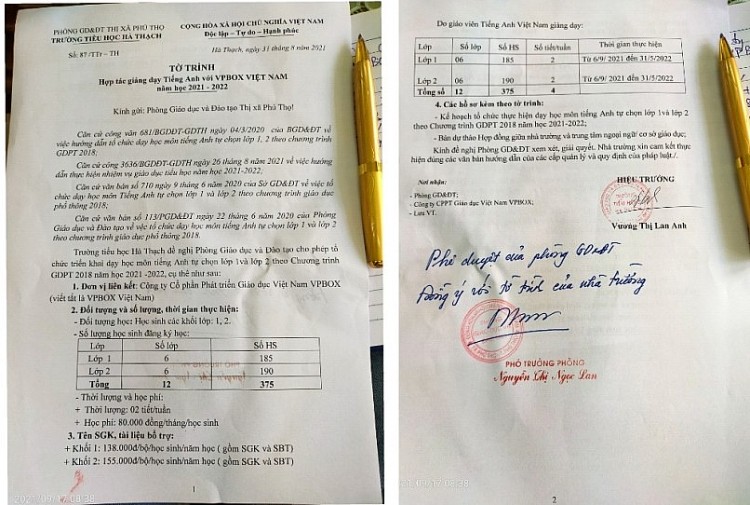 PHÒNG GD&ĐT THỊ XÃ PHÚ THỌ
TRƯỜNG TIỂU HỌC HÀ THẠCH
Số: 87 /TTr – TH
CỘNG HÒA XÃ HỘI CHỦ NGHĨA VIỆT NAM
Độc lập – Tự do – Hạnh phúc
Hà Thạch, ngày 31 tháng 8 năm 2021
TỜ TRÌNH
Hợp tác giảng dạy Tiếng Anh với VPBOX VIỆT NAM
năm học 2021 - 2022
Kính gửi: Phòng Giáo dục và Đào tạo Thị xã Phú Thọ!
Căn cứ công văn 681/BGDĐT-GDTH ngày 04/3/2020 của BGD&ĐT về
việc hướng dẫn tổ chức dạy học môn tiếng Anh tự chọn lớp 1, 2 theo chương trình
GDPT 2018;
Căn cứ công 3636/BGDĐT-GDTH ngày 26 tháng 8 năm 2021 về việc hướng
dẫn thực hiện nhiệm vụ giáo dục tiểu học năm học 2021-2022;
Căn cứ văn bản số 710 ngày 9 tháng 6 năm 2020 của Sở GD&ĐT về việc tổ
chức dạy học môn Tiếng Anh tự chọn lớp 1 và lớp 2 theo chương trình giáo dục
phổ thông 2018;
Căn cứ văn bản số 113/PGD&ĐT ngày 22 tháng 6 năm 2020 của Phòng
Giáo dục và Đào tạo về việc tổ chức dạy học môn tiếng Anh tự chọn lớp 1 và lớp 2
theo chương trình giáo dục phổ thông 2018.
Trường tiểu học Hà Thạch đề nghị Phòng Giáo dục và Đào tạo cho phép tổ
chức triển khai dạy học môn tiếng Anh tự chọn lớp 1và lớp 2 theo Chương trình
GDPT 2018 năm học 2021 -2022, cụ thể như sau:
1. Đơn vị liên kết: Công ty Cổ phần Phát triển Giáo dục Việt Nam VPBOX
(viết tắt là VPBOX Việt Nam)
2. Đối tượng và số lượng, thời gian thực hiện:
- Đối tượng học: Học sinh các khối lớp: 1, 2.
- Số lượng học sinh đăng ký học:
Lớp Số lớp Số HS
Lớp 1 6 185
Lớp 2 6 190
Tổng 12 375
- Thời lượng và học phí:
+ Thời lượng: 02 tiết/tuần
+ Học phí: 80.000 đồng/tháng/học sinh
3. Tên SGK, tài liệu bổ trợ:
+ Khối 1: 138.000đ/bộ/học sinh/năm học ( gồm SGK và SBT)
+ Khối 2: 155.000đ/bộ/học sinh/năm học ( gồm SGK và SBT)
1
Do giáo viên Tiếng Anh Việt Nam giảng dạy:
Lớp Số lớp Số HS Số tiết/tuần Thời gian thực hiện
Lớp 1 06 185 2 Từ 6/9/ 2021 đến 31/5/2022
Lớp 2 06 190 2 Từ 6/9/ 2021 đến 31/5/2022
Tổng số 12 375 4
4. Các hồ sơ kèm theo tờ trình:
- Kế hoạch tổ chức thực hiện dạy học môn tiếng Anh tự chọn lớp 1và lớp 2
theo Chương trình GDPT 2018 năm học 2021-2022;
- Bản dự thảo Hợp đồng giữa nhà trường và trung tâm ngoại ngữ/ cơ sở giáo dục;
Kính đề nghị Phòng GD&ĐT xem xét, giải quyết. Nhà trường xin cam kết thực
hiện đúng các văn bản hướng dẫn của các cấp quản lý và quy định của pháp luật./.
Nơi nhận:
- Phòng GD&ĐT;
- Công ty CPPT Giáo dục Việt Nam VPBOX;
- Lưu VT.
HIỆU TRƯỞNG
Vương Thị Lan Anh
Phê duyệt của phòng GD&ĐT
Đồng ý với tờ trình của nhà trường
PHÓ TRƯỞNG PHÒNG
Nguyễn Thị Ngọc Lan
2